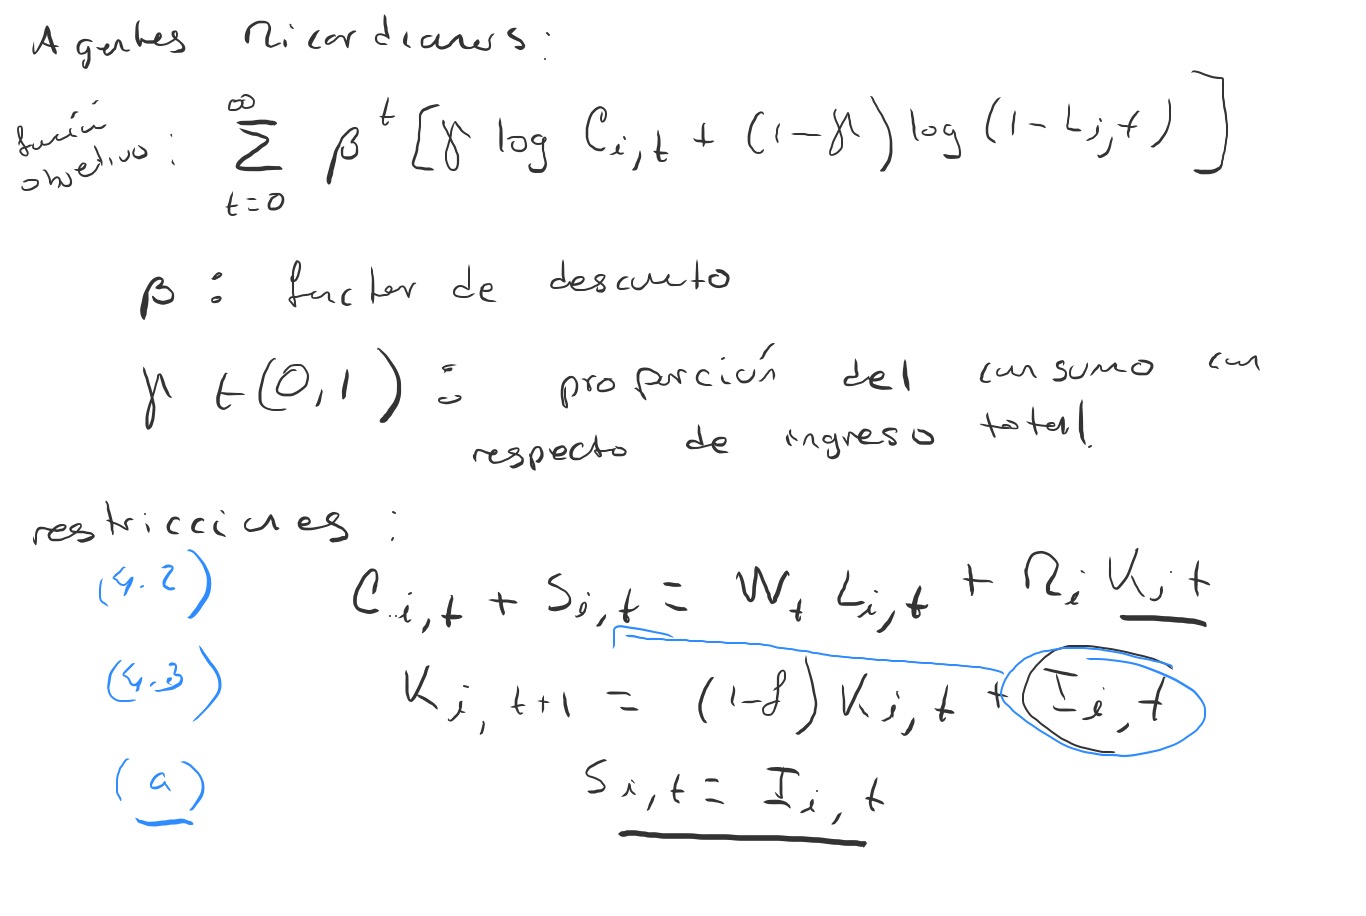 Agentes Ricardianos:
función objetivo: ∞ Σ t=0 β^t [γ log C_{i,t} + (1-γ) log (1-L_{i,t})]
β : factor de descuento
γ ∈ (0,1) : proporción del consumo con
respecto de ingreso total.
restricciones :
(4.2) C_{i,t} + S_{i,t} = W_t L_{i,t} + R_i K_{i,t}
(4.3) K_{i,t+1} = (1-δ) K_{i,t} + I_{i,t}
(a) S_{i,t} = I_{i,t}